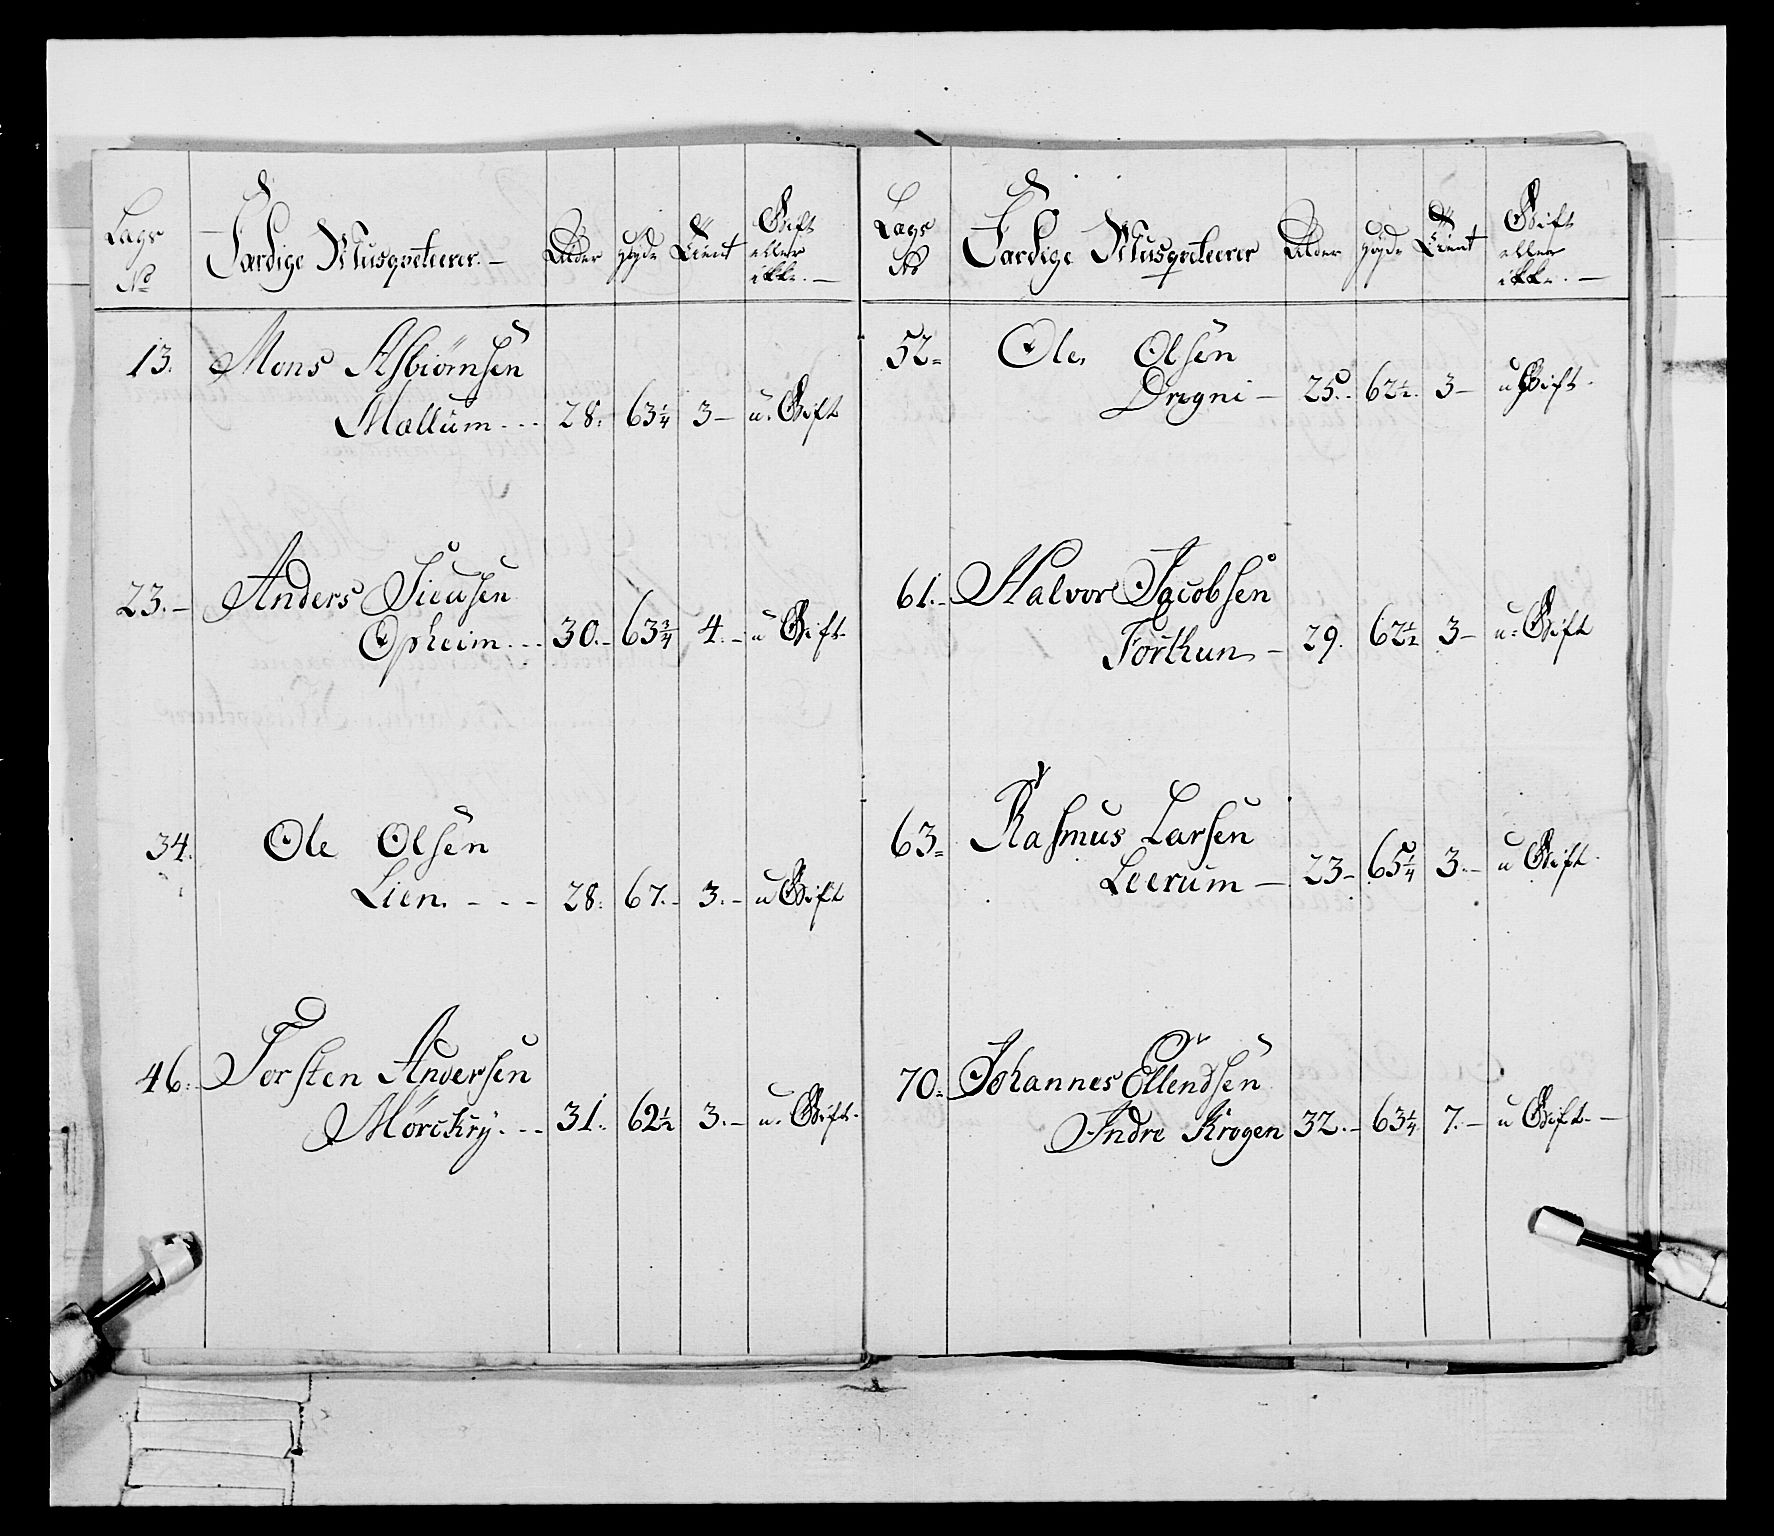 Lags No Færdige Musqveteerer. — Alder Høyde Tient Gift eller ikke. —
13. Mons Asbiørnsen
Mællum - - - 28. 63 1/4 3 — u. Gift
23. — Anders Sieusen
Opheim - - - 30. — 63 3/4 4. — u Gift
34. Ole Olsen
Lien. - - - 28. 67. — 3. — u Gift
46. Torsten Andersen
Mørckry. - - 31. 62 1/2 3. — u. Gift.
Lags No Færdige Musqveteerer Alder Høyde Tient Gift eller ikke. —
52 = Ole Olsen
Dregni — 25. 62 1/2. 3 — u Gift.
61. — Halvor Jacobsen
Forthun — 29. 62 1/2 3 — u. Gift
63 = Rasmus Larsen
Leerum — 23 — 65 1/4 3. — u Gift.
70 = Johannes Ellendsen
Indre Krogen 32. — 63 1/4 7. — u Gift. —